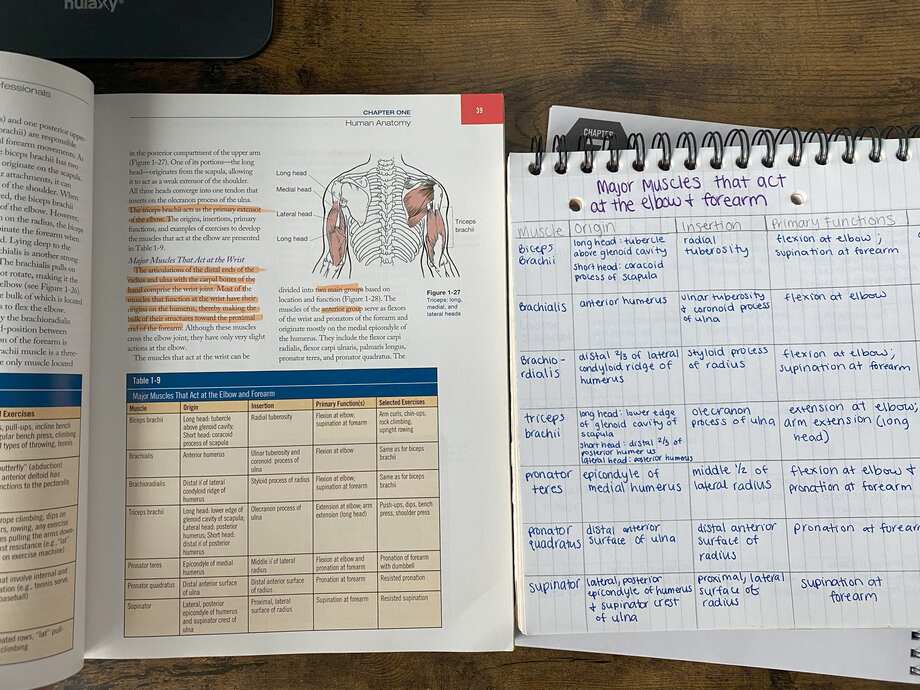 nulaxy®
ofessionals
CHAPTER ONE
Human Anatomy
39
in the posterior compartment of the upper arm
(Figure 1-27). One of its portions—the long
head—originates from the scapula, allowing
it to act as a weak extensor of the shoulder.
All three heads converge into one tendon that
inserts on the olecranon process of the ulna.
The triceps brachii acts as the primary extensor
of the elbow. The origins, insertions, primary
functions, and examples of exercises to develop
the muscles that act at the elbow are presented
in Table 1-9.
Major Muscles That Act at the Wrist
The articulations of the distal ends of the
radius and ulna with the carpal bones of the
hand comprise the wrist joint. Most of the
muscles that function at the wrist have their
origins on the humerus, thereby making the
bulk of their structures toward the proximal
end of the forearm. Although these muscles
cross the elbow joint, they have only very slight
actions at the elbow.
The muscles that act at the wrist can be
Long head
Medial head
Lateral head
Long head
Triceps
brachii
divided into two main groups based on
location and function (Figure 1-28). The
muscles of the anterior group serve as flexors
of the wrist and pronators of the forearm and
originate mostly on the medial epicondyle of
the humerus. They include the flexor carpi
radialis, flexor carpi ulnaris, palmaris longus,
pronator teres, and pronator quadratus. The
Figure 1-27
Triceps: long,
medial, and
lateral heads
Table 1-9
Major Muscles That Act at the Elbow and Forearm
Muscle Origin Insertion Primary Function(s) Selected Exercises
Biceps brachii Long head: tubercle Radial tuberosity Flexion at elbow; Arm curls, chin-ups,
above glenoid cavity; supination at forearm rock climbing,
Short head: coracoid upright rowing
process of scapula
Brachialis Anterior humerus Ulnar tuberosity and Flexion at elbow Same as for biceps
coronoid process of brachii
ulna
Brachioradialis Distal ⅔ of lateral Styloid process of radius Flexion at elbow; Same as for biceps
condyloid ridge of supination at forearm brachii
humerus
Triceps brachii Long head: lower edge Olecranon process of ulna Extension at elbow; arm Push-ups, dips, bench
of glenoid cavity of scapula; extension (long head) press, shoulder press
Lateral head: posterior
humerus; Short head:
distal ⅔ of posterior
humerus
Pronator teres Epicondyle of medial Middle ⅓ of lateral Flexion at elbow and Pronation of forearm
humerus radius pronation at forearm with dumbbell
Pronator quadratus Distal anterior surface Distal anterior surface Pronation at forearm Resisted pronation
of ulna of radius
Supinator Lateral, posterior Proximal, lateral Supination at forearm Resisted supination
epicondyle of humerus surface of radius
and supinator crest of
ulna
CHAPTER
Major Muscles that act
at the elbow & forearm
Muscle Origin Insertion Primary Functions
Biceps long head: tubercle radial flexion at elbow;
Brachii above glenoid cavity tuberosity supination at forearm
short head: coracoid
process of scapula
Brachialis anterior humerus ulnar tuberosity flexion at elbow
& coronoid process
of ulna
Brachio- distal ⅔ of lateral styloid process flexion at elbow;
rdialis condyloid ridge of of radius supination at forearm
humerus
triceps long head: lower edge olecranon extension at elbow;
brachii of glenoid cavity of process of ulna arm extension (long
scapula head)
short head: distal ⅔ of
posterior humerus
lateral head: posterior humerus
pronator epicondyle of middle ½ of flexion at elbow &
teres medial humerus lateral radius pronation at forearm
pronator distal anterior distal anterior pronation at forearm
quadratus surface of ulna surface of
radius
supinator lateral, posterior proximal, lateral supination at
epicondyle of humerus surface of forearm
& supinator crest radius
of ulna